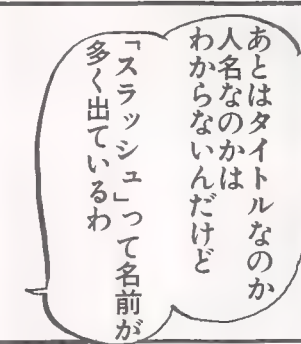 あとはタイトルなのか
人名なのかは
わからないんだけど
「スラッシュ」って名前が
多く出ているわ